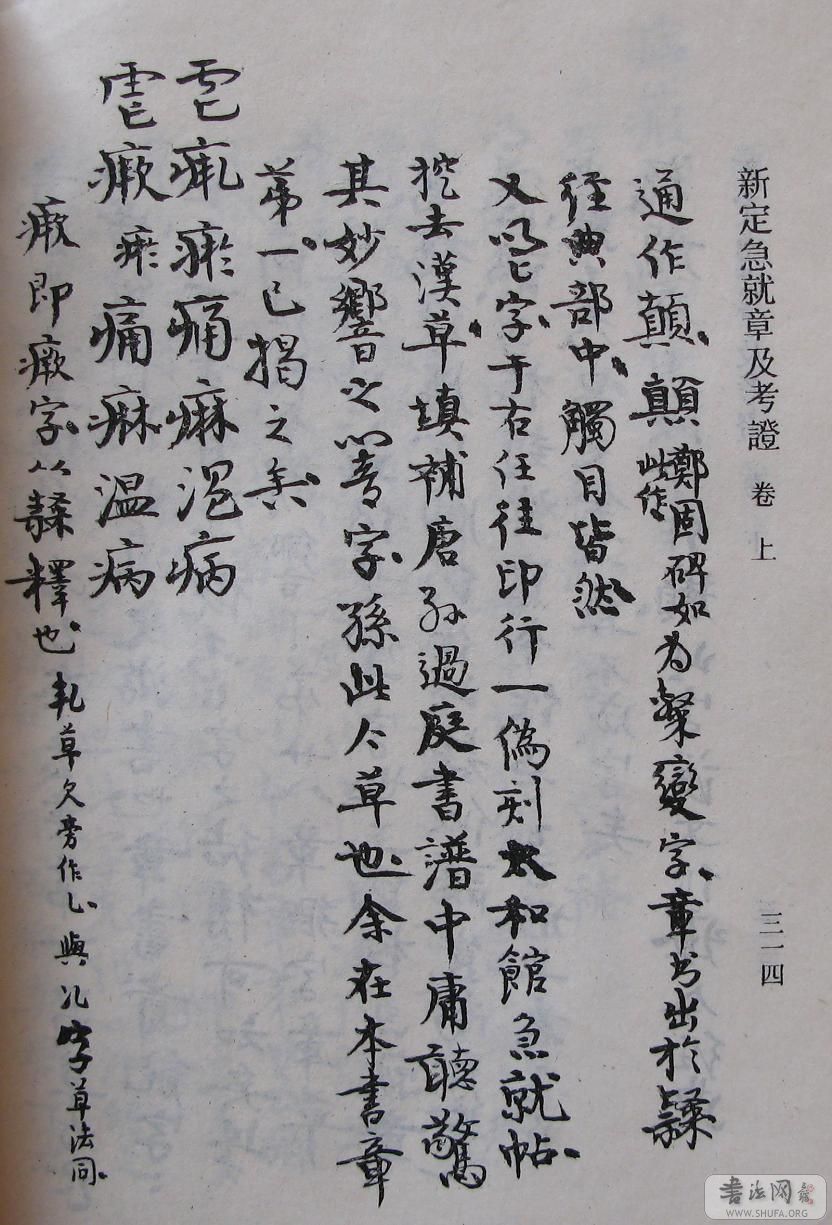 新定急就章及考證 卷上 三一四
通作顛、顛鄭固碑如此作為變字、章書出於隸
經典部中、觸目皆然、
又字、于右任往印行一偽刻太和館急就帖、
挖去漢草填補唐孫過庭書譜中庸聽驚
其妙響之音字、孫此今草也、余在本書章
第一、已揭之矣、
雹瘚瘀痛痳温病
雹瘚瘀痛痳温病
瘚即瘚字、以隸釋也、草欠旁作、與字草法同、
書法网
WWW.SHUFA.ORG